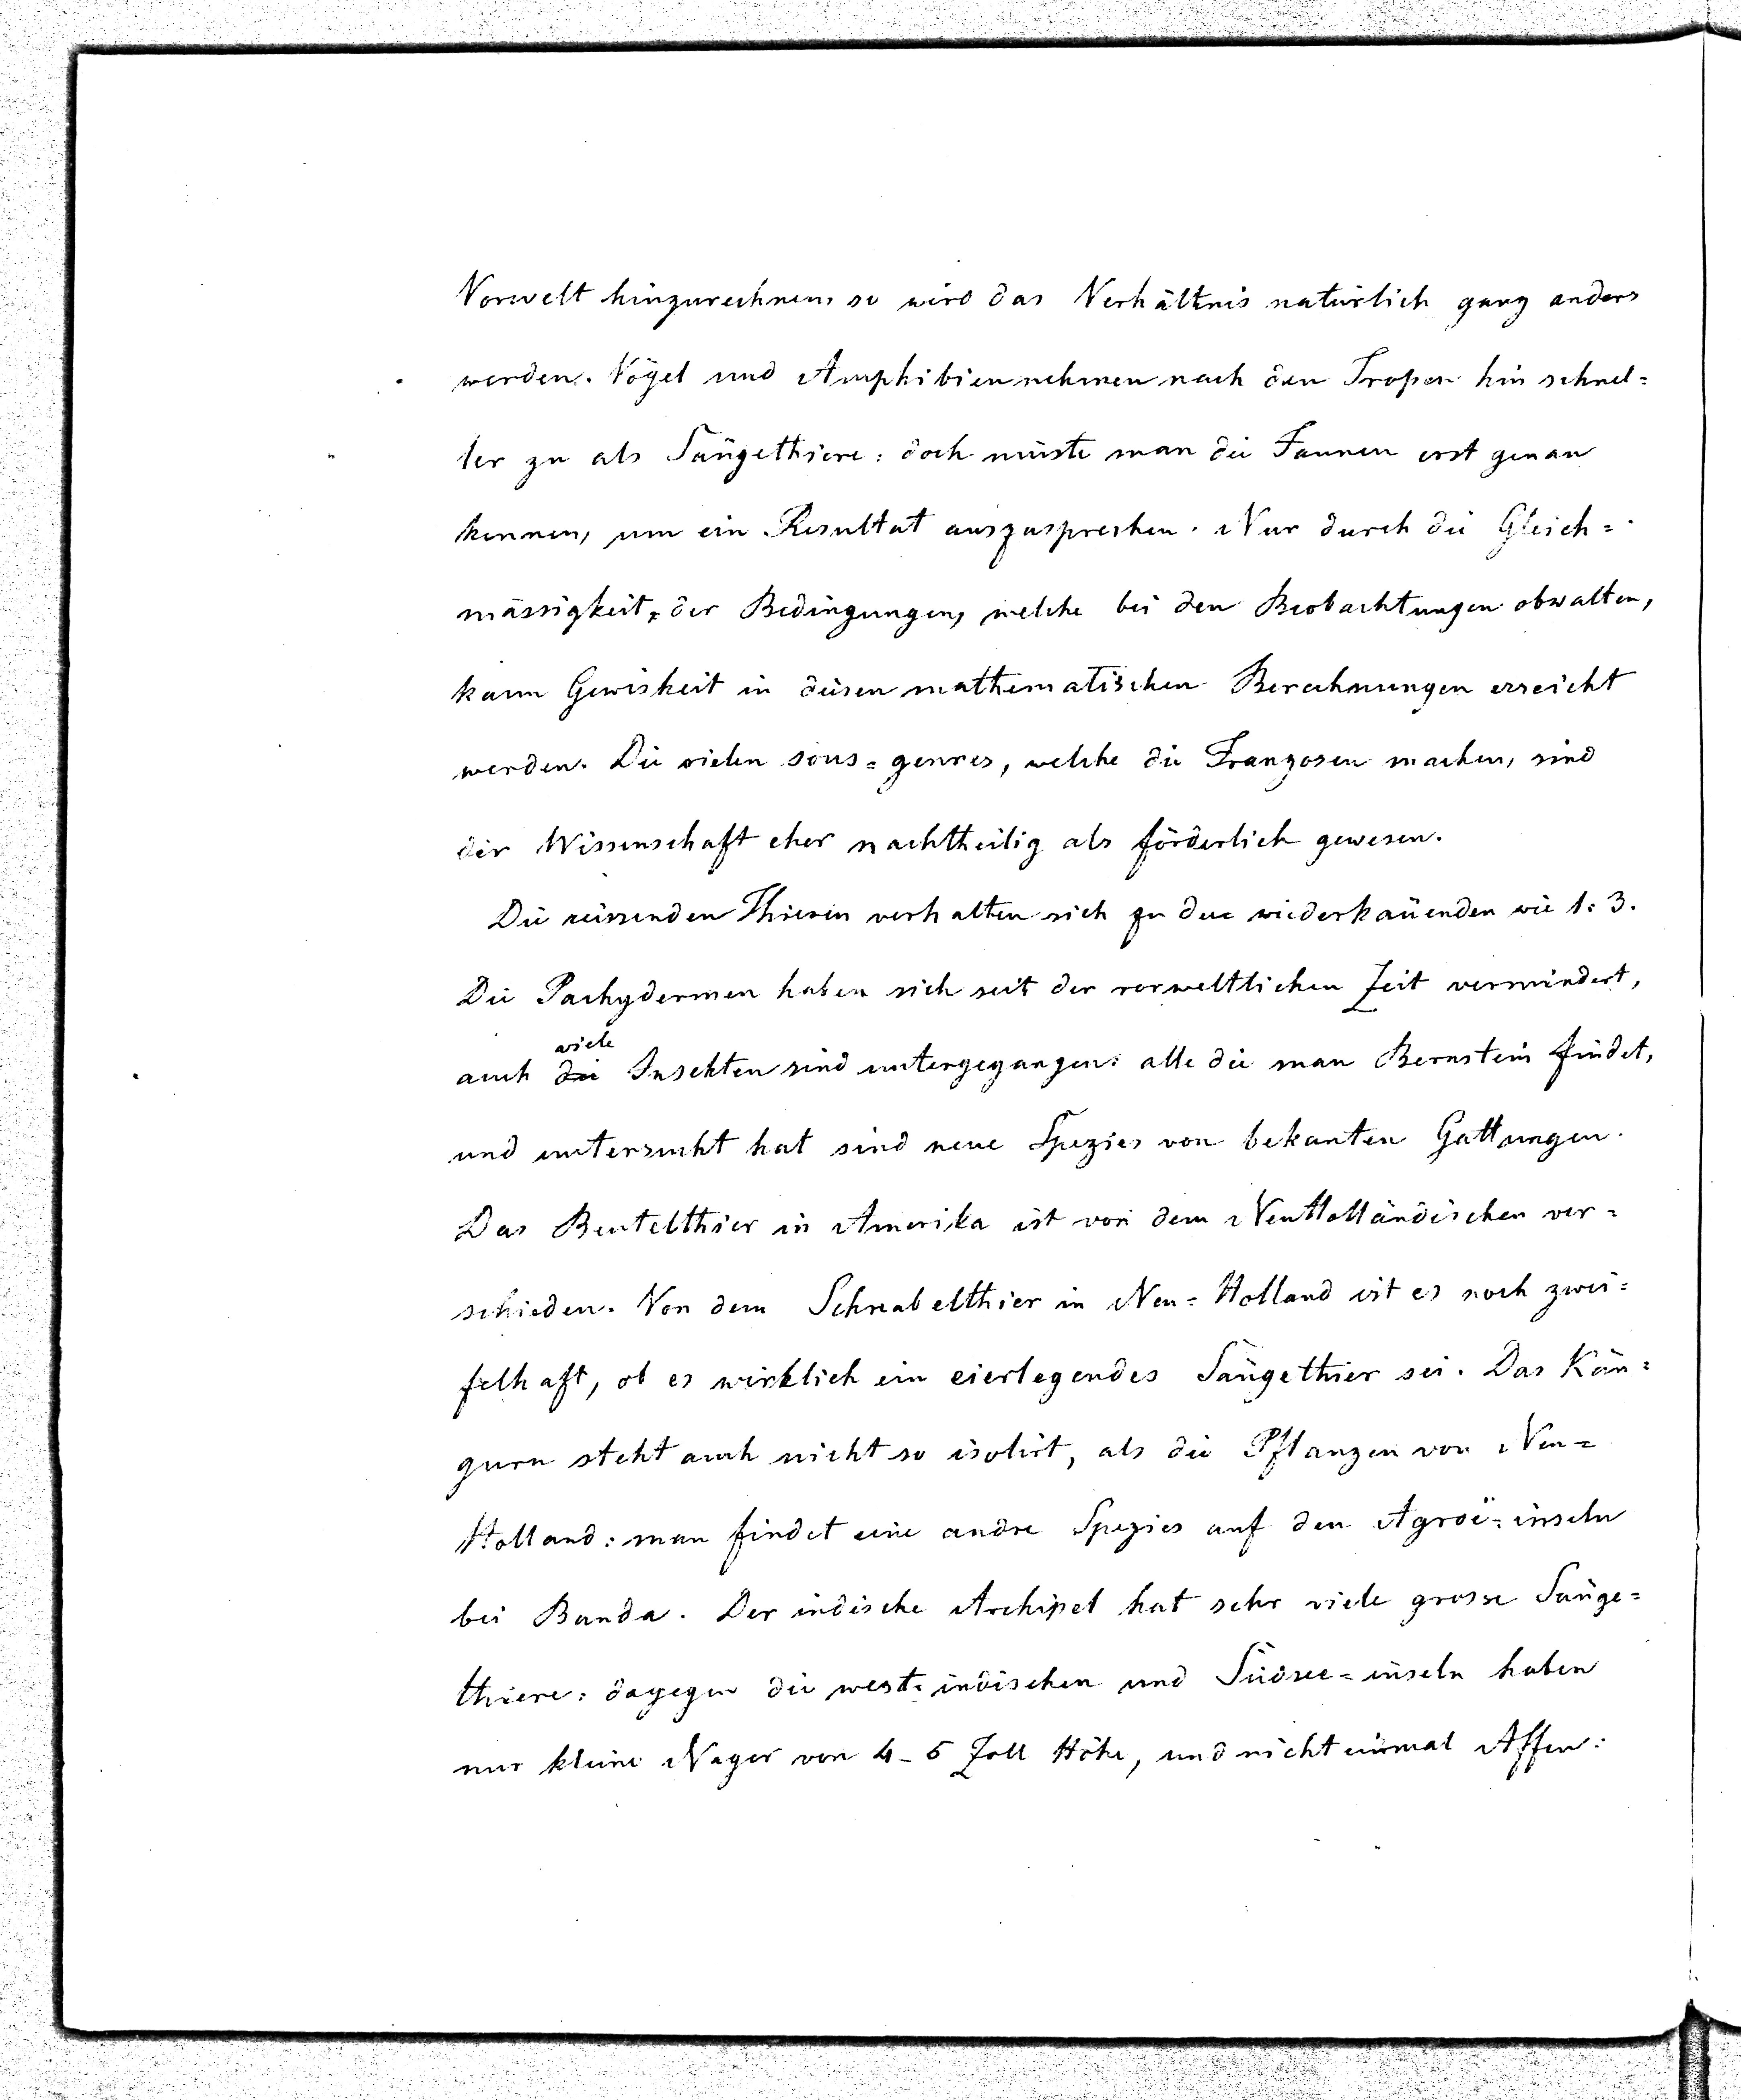 Vorwelt hinzurechnen, so wird das Verhältnis natürlich ganz anders
werden. Vögel und Amphibien nehmen nach den Tropen hin schnel=
ler zu als Säugethiere: doch müste man die Faunen erst genau
kennen, um ein Resultat auszusprechen. Nur durch die Gleich=
mässigkeit der Bedingungen, welche bei den Beobachtungen obwalten,
kann Gewisheit in diesen mathematischen Berechnungen erreicht
werden. Die vielen sous=genres, welche die Franzosen machen, sind
der Wissenschaft eher nachtheilig als förderlich gewesen.
Die reissenden Thieren verhalten sich zu den wiederkäuenden wie 1:3.
Die Pachydermen haben sich seit der vorweltlichen Zeit vermindert,
viele
auch die Insekten sind untergegangen: alle die man Bernstein findet,
und untersucht hat sind neue Spezies von bekanten Gattungen.
Das Beutelthier in Amerika ist von dem NeuHolländischen ver=
schieden. Von dem Schnabelthier in Neu=Holland ist es noch zwei=
felhaft, ob es wirklich ein eierlegendes Säugethier sei. Das Kän=
guru steht auch nicht so isolirt, als die Pflanzen von Neu=
Holland: man findet eine andre Spezies auf den Agroë=inseln
bei Banda. Der indische Archipel hat sehr viele grosse Säuge=
thiere: dagegen die west=indischen und Südsee=inseln haben
nur kleine Nager von 4-5 Zoll Höhe, und nicht einmal Affen: